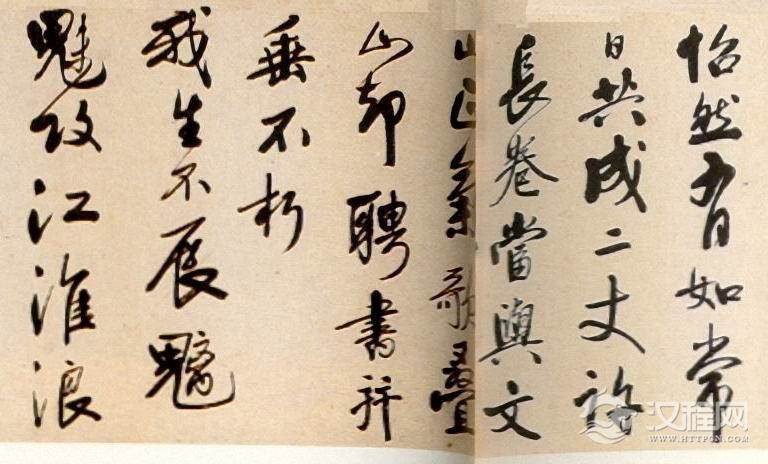 怡然如常
日共成二丈許
長卷當與文
山正氣歌疊
山却聘書并
垂不朽
我生不辰魑
魅攻江淮浪
汉程网
WWW.HTTPCN.COM